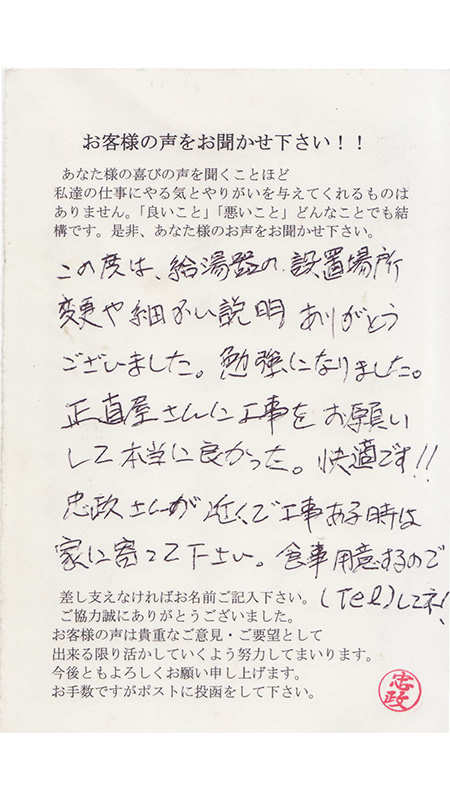 お客様の声をお聞かせ下さい！！
あなた様の喜びの声を聞くことほど
私達の仕事にやる気とやりがいを与えてくれるものは
ありません。「良いこと」「悪いこと」どんなことでも結
構です。是非、あなた様のお声をお聞かせ下さい。
この度は、給湯器の設置場所
変更や細かい説明ありがとう
ございました。勉強になりました。
正直屋さんに工事をお願い
して本当に良かった。快適です!!
忠政さんが近くで工事ある時は
家に寄って下さい。食事用意するので
(Tel)してネ!
差し支えなければお名前ご記入下さい。
ご協力誠にありがとうございました。
お客様の声は貴重なご意見・ご要望として
出来る限り活かしていくよう努力してまいります。
今後ともよろしくお願い申し上げます。
お手数ですがポストに投函をして下さい。
忠政